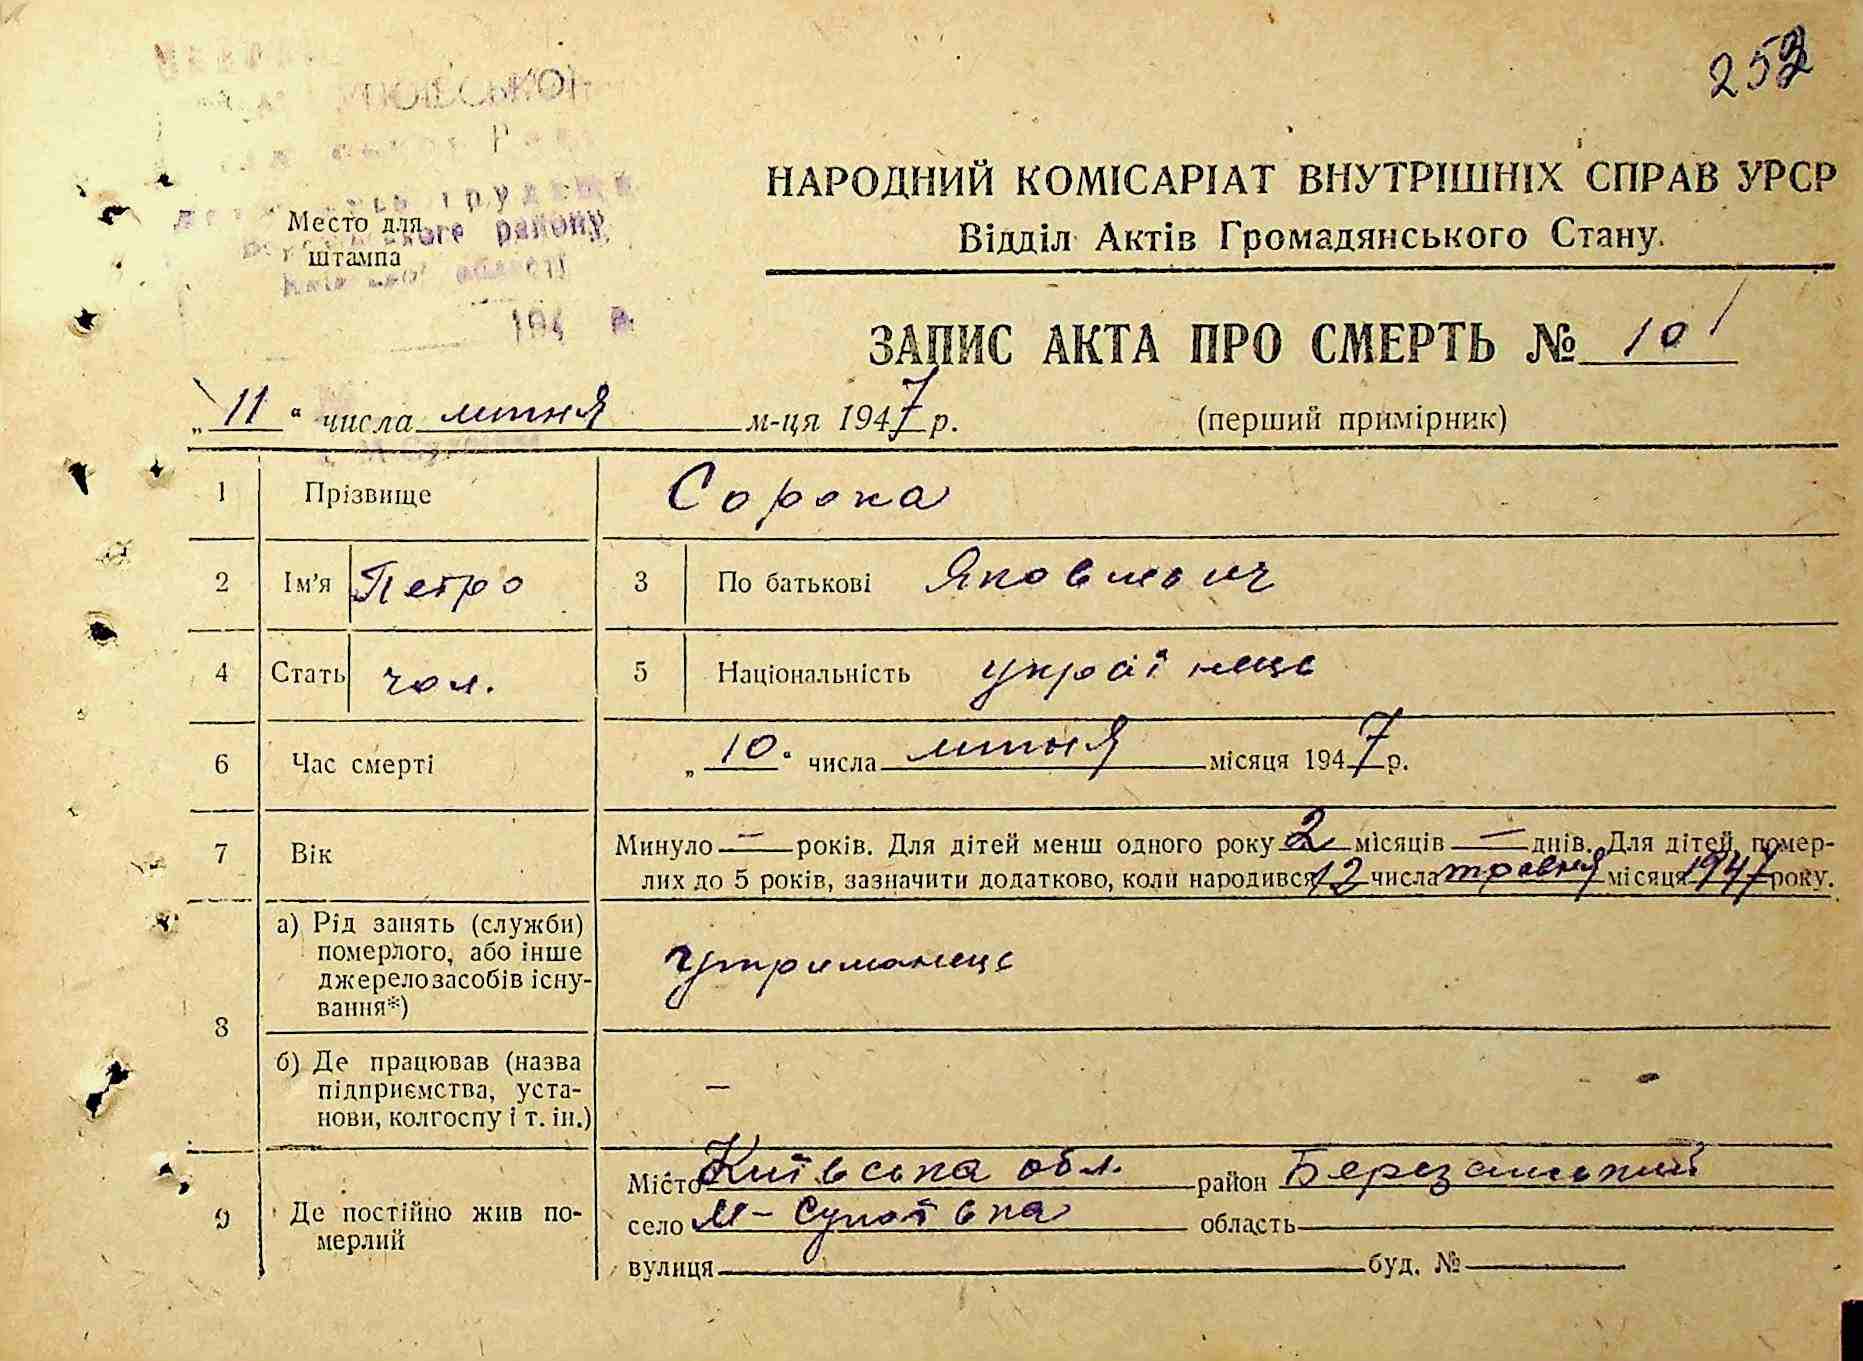 253
НАРОДНИЙ КОМІСАРІАТ ВНУТРІШНІХ СПРАВ УРСР
Відділ Актів Громадянського Стану.
Место для
штампа
району
області
194 р.
ЗАПИС АКТА ПРО СМЕРТЬ № 101
„11“ числа липня м-ця 1947 р. (перший примірник)
1 Прізвище Сорока
2 Ім'я Петро 3 По батькові Якович
4 Стать чол. 5 Національність українець
6 Час смерті „10“ числа липня місяця 1947 р.
7 Вік Минуло — років. Для дітей менш одного року 2 місяців — днів. Для дітей, помер-
лих до 5 років, зазначити додатково, коли народився 12 числа травня місяця 1947 року.
8 а) Рід занять (служби)
померлого, або інше
джерело засобів існу-
вання*)
утриманець
б) Де працював (назва
підприємства, уста-
нови, колгоспу і т. ін.)
—
9 Де постійно жив по-
мерлий
Місто Київська обл. район Березанський
село М-Супоївка область
вулиця буд. №